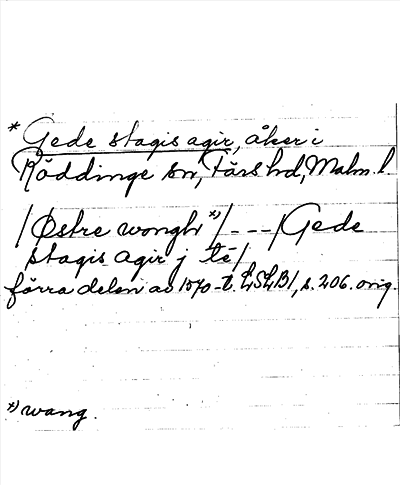 * Gede stagis agir, åker i
Röddinge sn, Färs hd, Malm. l.
/Østre wongh *)/ --- /Gede
stagis agir j té/
förra delen av 1570-t. LSLB1, s. 206. orig.
*) wang.